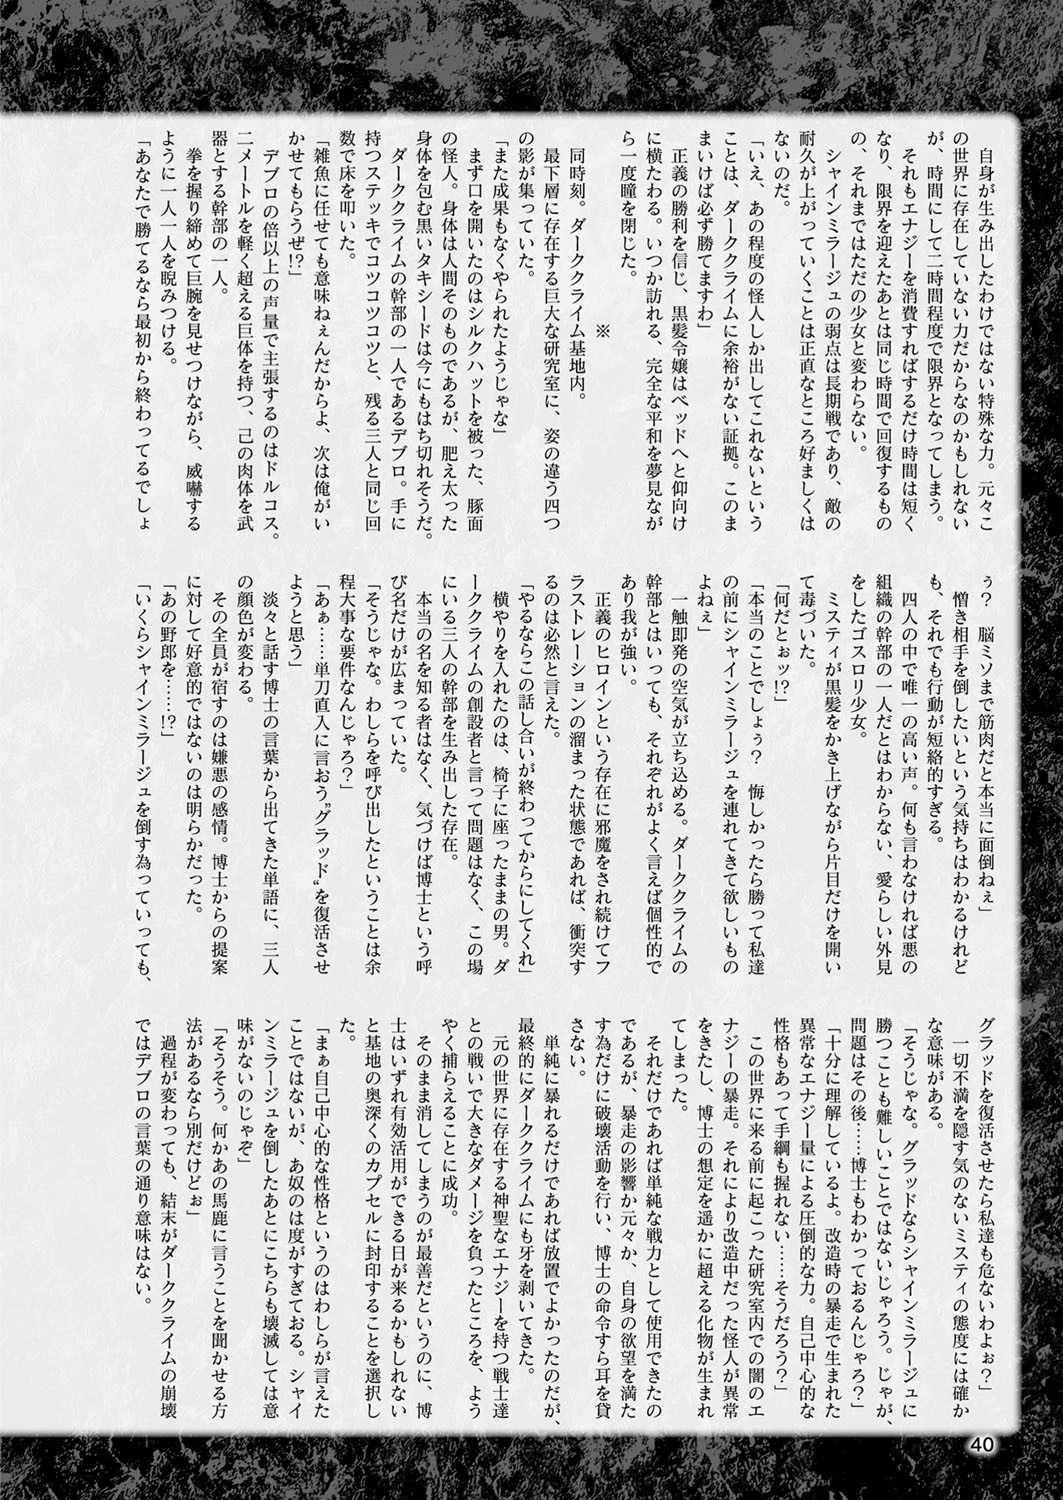 自身が生み出したわけではない特殊な力。元々こ
の世界に存在していない力だからなのかもしれない
が、時間にして二時間程度で限界となってしまう。
それもエナジーを消費すればするだけ時間は短く
なり、限界を迎えたあとは同じ時間で回復するもの
の、それまではただの少女と変わらない。
シャインミラージュの弱点は長期戦であり、敵の
耐久が上がっていくことは正直なところ好ましくは
ないのだ。
「いえ、あの程度の怪人しか出してこれないという
ことは、ダーククライムに余裕がない証拠。このま
まいけば必ず勝てますわ」
正義の勝利を信じ、黒髪令嬢はベッドへと仰向け
に横たわる。いつか訪れる、完全な平和を夢見なが
ら一度瞳を閉じた。
※
同時刻。ダーククライム基地内。
最下層に存在する巨大な研究室に、姿の違う四つ
の影が集っていた。
「また成果もなくやられたようじゃな」
まず口を開いたのはシルクハットを被った、豚面
の怪人。身体は人間そのものであるが、肥え太った
身体を包む黒いタキシードは今にもはち切れそうだ。
ダーククライムの幹部の一人であるデブロ。手に
持つステッキでコツコツコツと、残る三人と同じ回
数で床を叩いた。
「雑魚に任せても意味ねぇんだからよ、次は俺がい
かせてもらうぜ!?」
デブロの倍以上の声量で主張するのはドルコス。
二メートルを軽く超える巨体を持つ、己の肉体を武
器とする幹部の一人。
拳を握り締めて巨腕を見せつけながら、威嚇する
ように一人一人を睨みつける。
「あなたで勝てるなら最初から終わってるでしょ
ぅ？　脳ミソまで筋肉だと本当に面倒ねぇ」
憎き相手を倒したいという気持ちはわかるけれど
も、それでも行動が短絡的すぎる。
四人の中で唯一の高い声。何も言わなければ悪の
組織の幹部の一人だとはわからない、愛らしい外見
をしたゴスロリ少女。
ミスティが黒髪をかき上げながら片目だけを開い
て毒づいた。
「何だとぉッ!?」
「本当のことでしょぅ？　悔しかったら勝って私達
の前にシャインミラージュを連れてきて欲しいもの
よねぇ」
一触即発の空気が立ち込める。ダーククライムの
幹部とはいっても、それぞれがよく言えば個性的で
あり我が強い。
正義のヒロインという存在に邪魔をされ続けてフ
ラストレーションの溜まった状態であれば、衝突す
るのは必然と言えた。
「やるならこの話し合いが終わってからにしてくれ」
横やりを入れたのは、椅子に座ったままの男。ダ
ーククライムの創設者と言って問題はなく、この場
にいる三人の幹部を生み出した存在。
本当の名を知る者はなく、気づけば博士という呼
び名だけが広まっていた。
「そうじゃな。わしらを呼び出したということは余
程大事な要件なんじゃろ？」
「あぁ……単刀直入に言おう〝グラッド〟を復活させ
ようと思う」
淡々と話す博士の言葉から出てきた単語に、三人
の顔色が変わる。
その全員が宿すのは嫌悪の感情。博士からの提案
に対して好意的ではないのは明らかだった。
「あの野郎を……!?」
「いくらシャインミラージュを倒す為っていっても、
グラッドを復活させたら私達も危ないわよぉ？」
一切不満を隠す気のないミスティの態度には確か
な意味がある。
「そうじゃな。グラッドならシャインミラージュに
勝つことも難しいことではないじゃろう。じゃが、
問題はその後……博士もわかっておるんじゃろ？」
「十分に理解しているよ。改造時の暴走で生まれた
異常なエナジー量による圧倒的な力。自己中心的な
性格もあって手綱も握れない……そうだろう？」
この世界に来る前に起こった研究室内での闇のエ
ナジーの暴走。それにより改造中だった怪人が異常
をきたし、博士の想定を遥かに超える化物が生まれ
てしまった。
それだけであれば単純な戦力として使用できたの
であるが、暴走の影響か元々か、自身の欲望を満た
す為だけに破壊活動を行い、博士の命令すら耳を貸
さない。
単純に暴れるだけであれば放置でよかったのだが、
最終的にダーククライムにも牙を剥いてきた。
元の世界に存在する神聖なエナジーを持つ戦士達
との戦いで大きなダメージを負ったところを、よう
やく捕らえることに成功。
そのまま消してしまうのが最善だというのに、博
士はいずれ有効活用ができる日が来るかもしれない
と基地の奥深くのカプセルに封印することを選択し
た。
「まぁ自己中心的な性格というのはわしらが言えた
ことではないが、あ奴のは度がすぎておる。シャイ
ンミラージュを倒したあとにこちらも壊滅しては意
味がないのじゃぞ」
「そうそう。何かあの馬鹿に言うことを聞かせる方
法があるなら別だけどぉ」
過程が変わっても、結末がダーククライムの崩壊
ではデブロの言葉の通り意味はない。
40